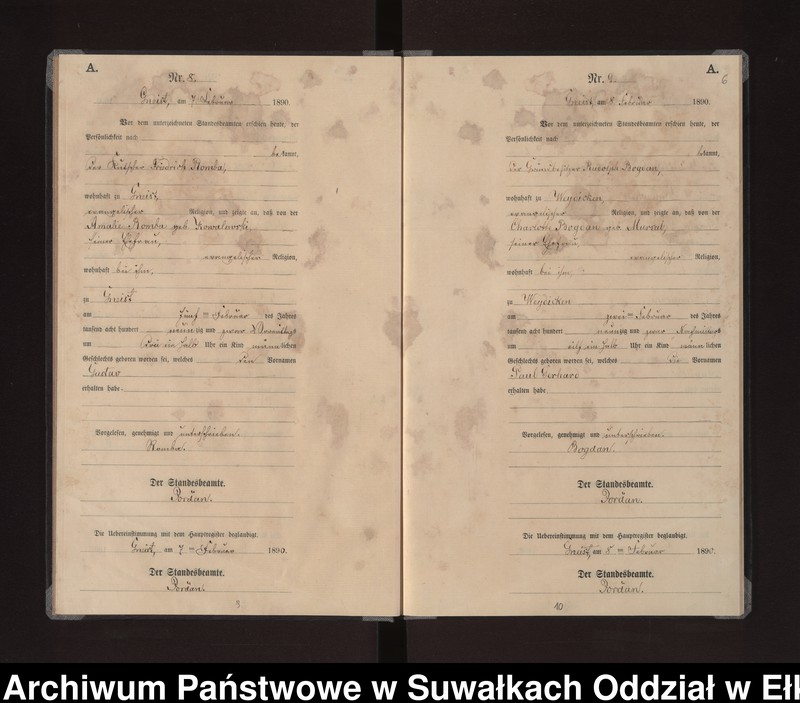 A.
Nr. 8.
Gneist, am 7 Februar 1890.
Vor dem unterzeichneten Standesbeamten erschien heute, der
Persönlichkeit nach
bekannt,
der Kutscher Friedrich Romba,
wohnhaft zu Gneist,
evangelischer Religion, und zeigte an, daß von der
Amalie Romba geb. Kowalewski,
seiner Ehefrau,
evangelischer Religion,
wohnhaft bei ihm,
zu Gneist
am fünf ten Februar des Jahres
tausend acht hundert neunzig und zwar Vormittags
um drei ein halb Uhr ein Kind männlichen
Geschlechts geboren worden sei, welches den Vornamen
Gustav
erhalten habe.
Vorgelesen, genehmigt und unterschrieben.
Romba.
Der Standesbeamte.
Pordan.
Die Uebereinstimmung mit dem Hauptregister beglaubigt.
Gneist, am 7 ten Februar 1890.
Der Standesbeamte.
Pordan.
9
A.
6
Nr. 9.
Gneist, am 8 Februar 1890.
Vor dem unterzeichneten Standesbeamten erschien heute, der
Persönlichkeit nach
bekannt,
der Grundbesitzer Rudolph Bogdan,
wohnhaft zu Weydicken,
evangelischer Religion, und zeigte an, daß von der
Charlotte Bogdan geb.
seiner Ehefrau,
evangelischer Religion,
wohnhaft bei ihm,
zu Weydicken
am zwei ten Februar des Jahres
tausend acht hundert neunzig und zwar Nachmittags
um ein halb Uhr ein Kind männlichen
Geschlechts geboren worden sei, welches die Vornamen
Paul Gerhard
erhalten habe.
Vorgelesen, genehmigt und unterschrieben.
Bogdan.
Der Standesbeamte.
Pordan.
Die Uebereinstimmung mit dem Hauptregister beglaubigt.
Gneist, am 8 ten Februar 1890.
Der Standesbeamte.
Pordan.
10
Archiwum Państwowe w Suwałkach Oddział w Ełk